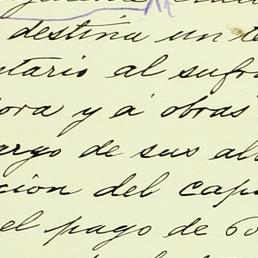 destina un te
ntario al sufr
ora y á obras
argo de sus al
cion del cap
el pago de 60